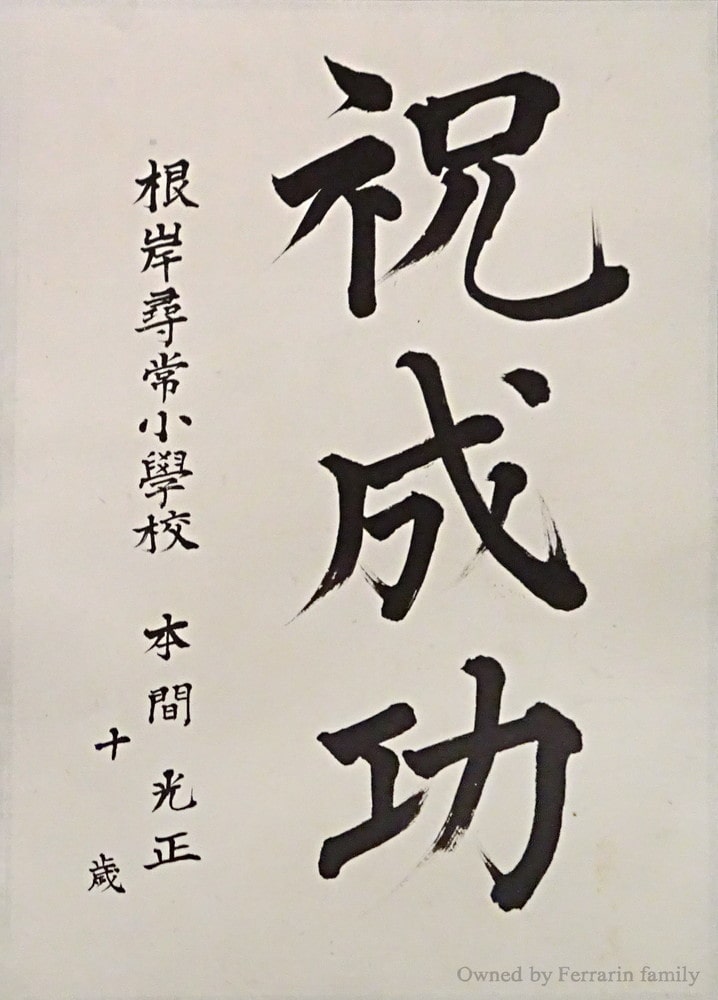 祝成功
根岸尋常小學校 本間光正
十歳
Owned by Ferrarin family